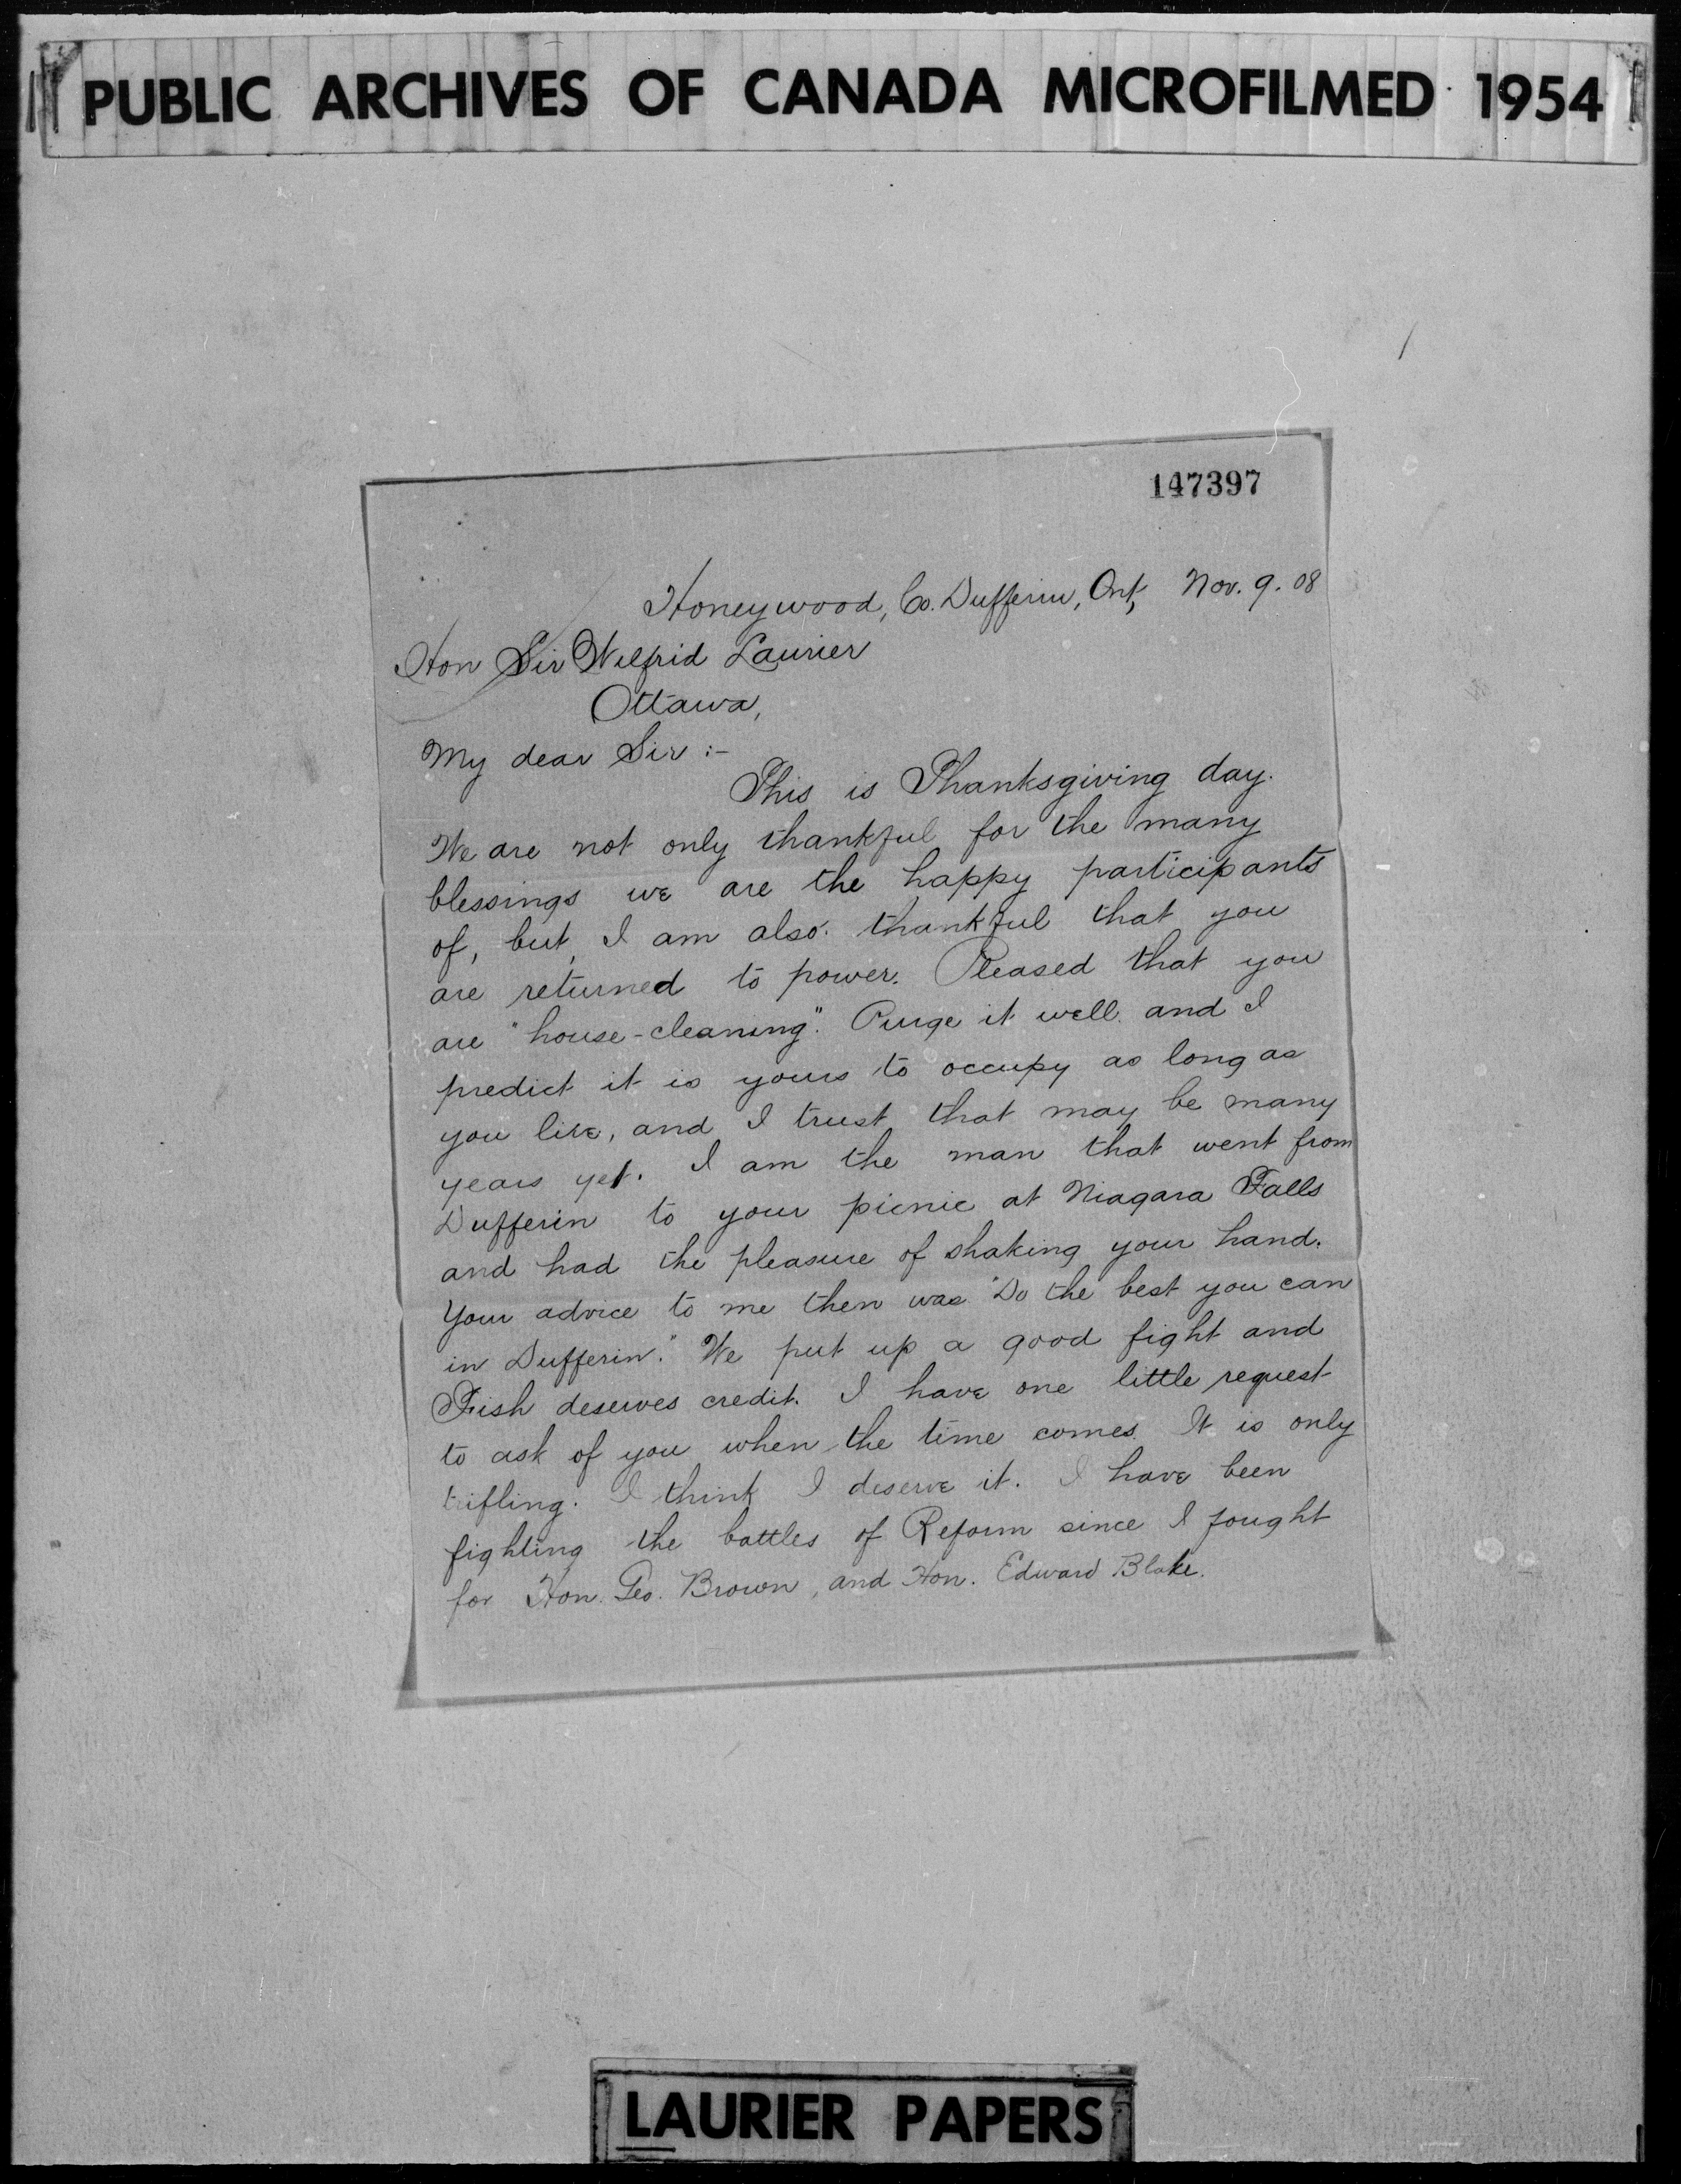 PUBLIC ARCHIVES OF CANADA MICROFILMED 1954
147397
Honeywood, Co. Dufferin, Ont, Nov. 9. 08
Hon Sir Wilfrid Laurier
Ottawa,
My dear Sir :-
This is Thanksgiving day.
We are not only thankful for the many
blessings we are the happy participants
of, but, I am also thankful that you
are returned to power. Pleased that you
are "house-cleaning". Purge it well and I
predict it is yours to occupy as long as
you live, and I trust that may be many
years yet. I am the man that went from
Dufferin to your picnic at Niagara Falls
and had the pleasure of shaking your hand.
Your advice to me then was "Do the best you can
in Dufferin." We put up a good fight and
Fish deserves credit. I have one little request
to ask of you when the time comes. It is only
trifling. I think I deserve it. I have been
fighting the battles of Reform since I fought
for Hon. Geo. Brown, and Hon. Edward Blake.
LAURIER PAPERS